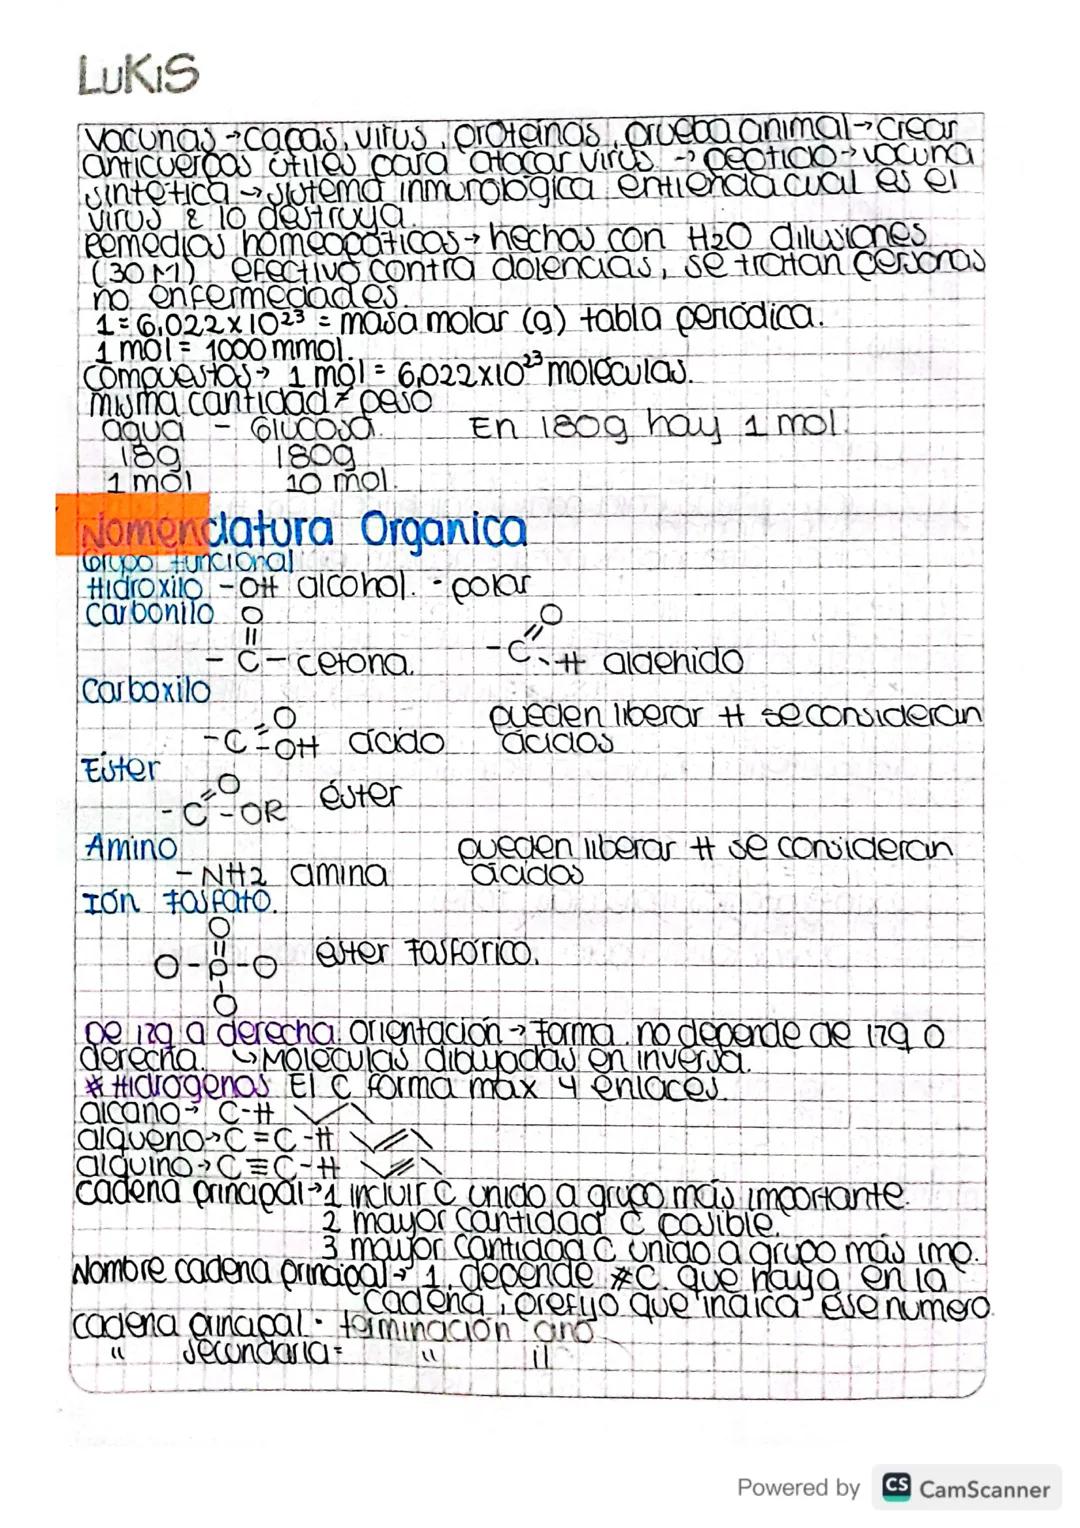 LUKIS
vacunas → capas, virus, proteinas, prueba animal → crear
anticuerpos útiles para atacar virus → peptido → vacuna
sintética → sistema inmurologica entienda cual es el
virus & lo destruya.
Remedios homeopáticos → hechos con H2O dilusiones
(30 M) efectivo contra dolencias, se tratan personas
no enfermedades.
1 = 6,022 x 10²³ = masa molar (g) tabla periódica.
1 mol = 1000 mmol.
compuestos → 1 mol = 6,022x10²³ moléculas.
misma cantidad ≠ peso
agua - Glucosa. En 180g hay 1 mol.
18g 180g
1 mol 10 mol.
Nomenclatura Organica
Grupo funcional
Hidroxilo -OH alcohol. - polar
Carbonilo O O
|| //
- C - cetona. - C - H aldehido
Carboxilo
O pueden liberar H se consideran
- C = OH ácido ácidos
Ester
O éster
- C - OR
Amino pueden liberar H se consideran
- NH2 amina ácidos
Ión fosfato.
O
||
O - P - O éster fosfórico.
-
O
De izq a derecha orientación → forma. no depende de izq o
derecha. ↳ Moléculas dibujadas en inversa.
* Hidrogenos El C forma max 4 enlaces.
alcano → C-H
alqueno → C=C-H
alquino → C≡C-H
cadena principal → 1 incluir C unido a grupo más importante.
2 mayor cantidad C posible.
3 mayor cantidad C unido a grupo más imp.
Nombre cadena principal → 1. depende #C. que haya en la
cadena, prefijo que indica ese numero.
cadena principal · terminación ano
" secundaria = " il
Powered by CS CamScanner